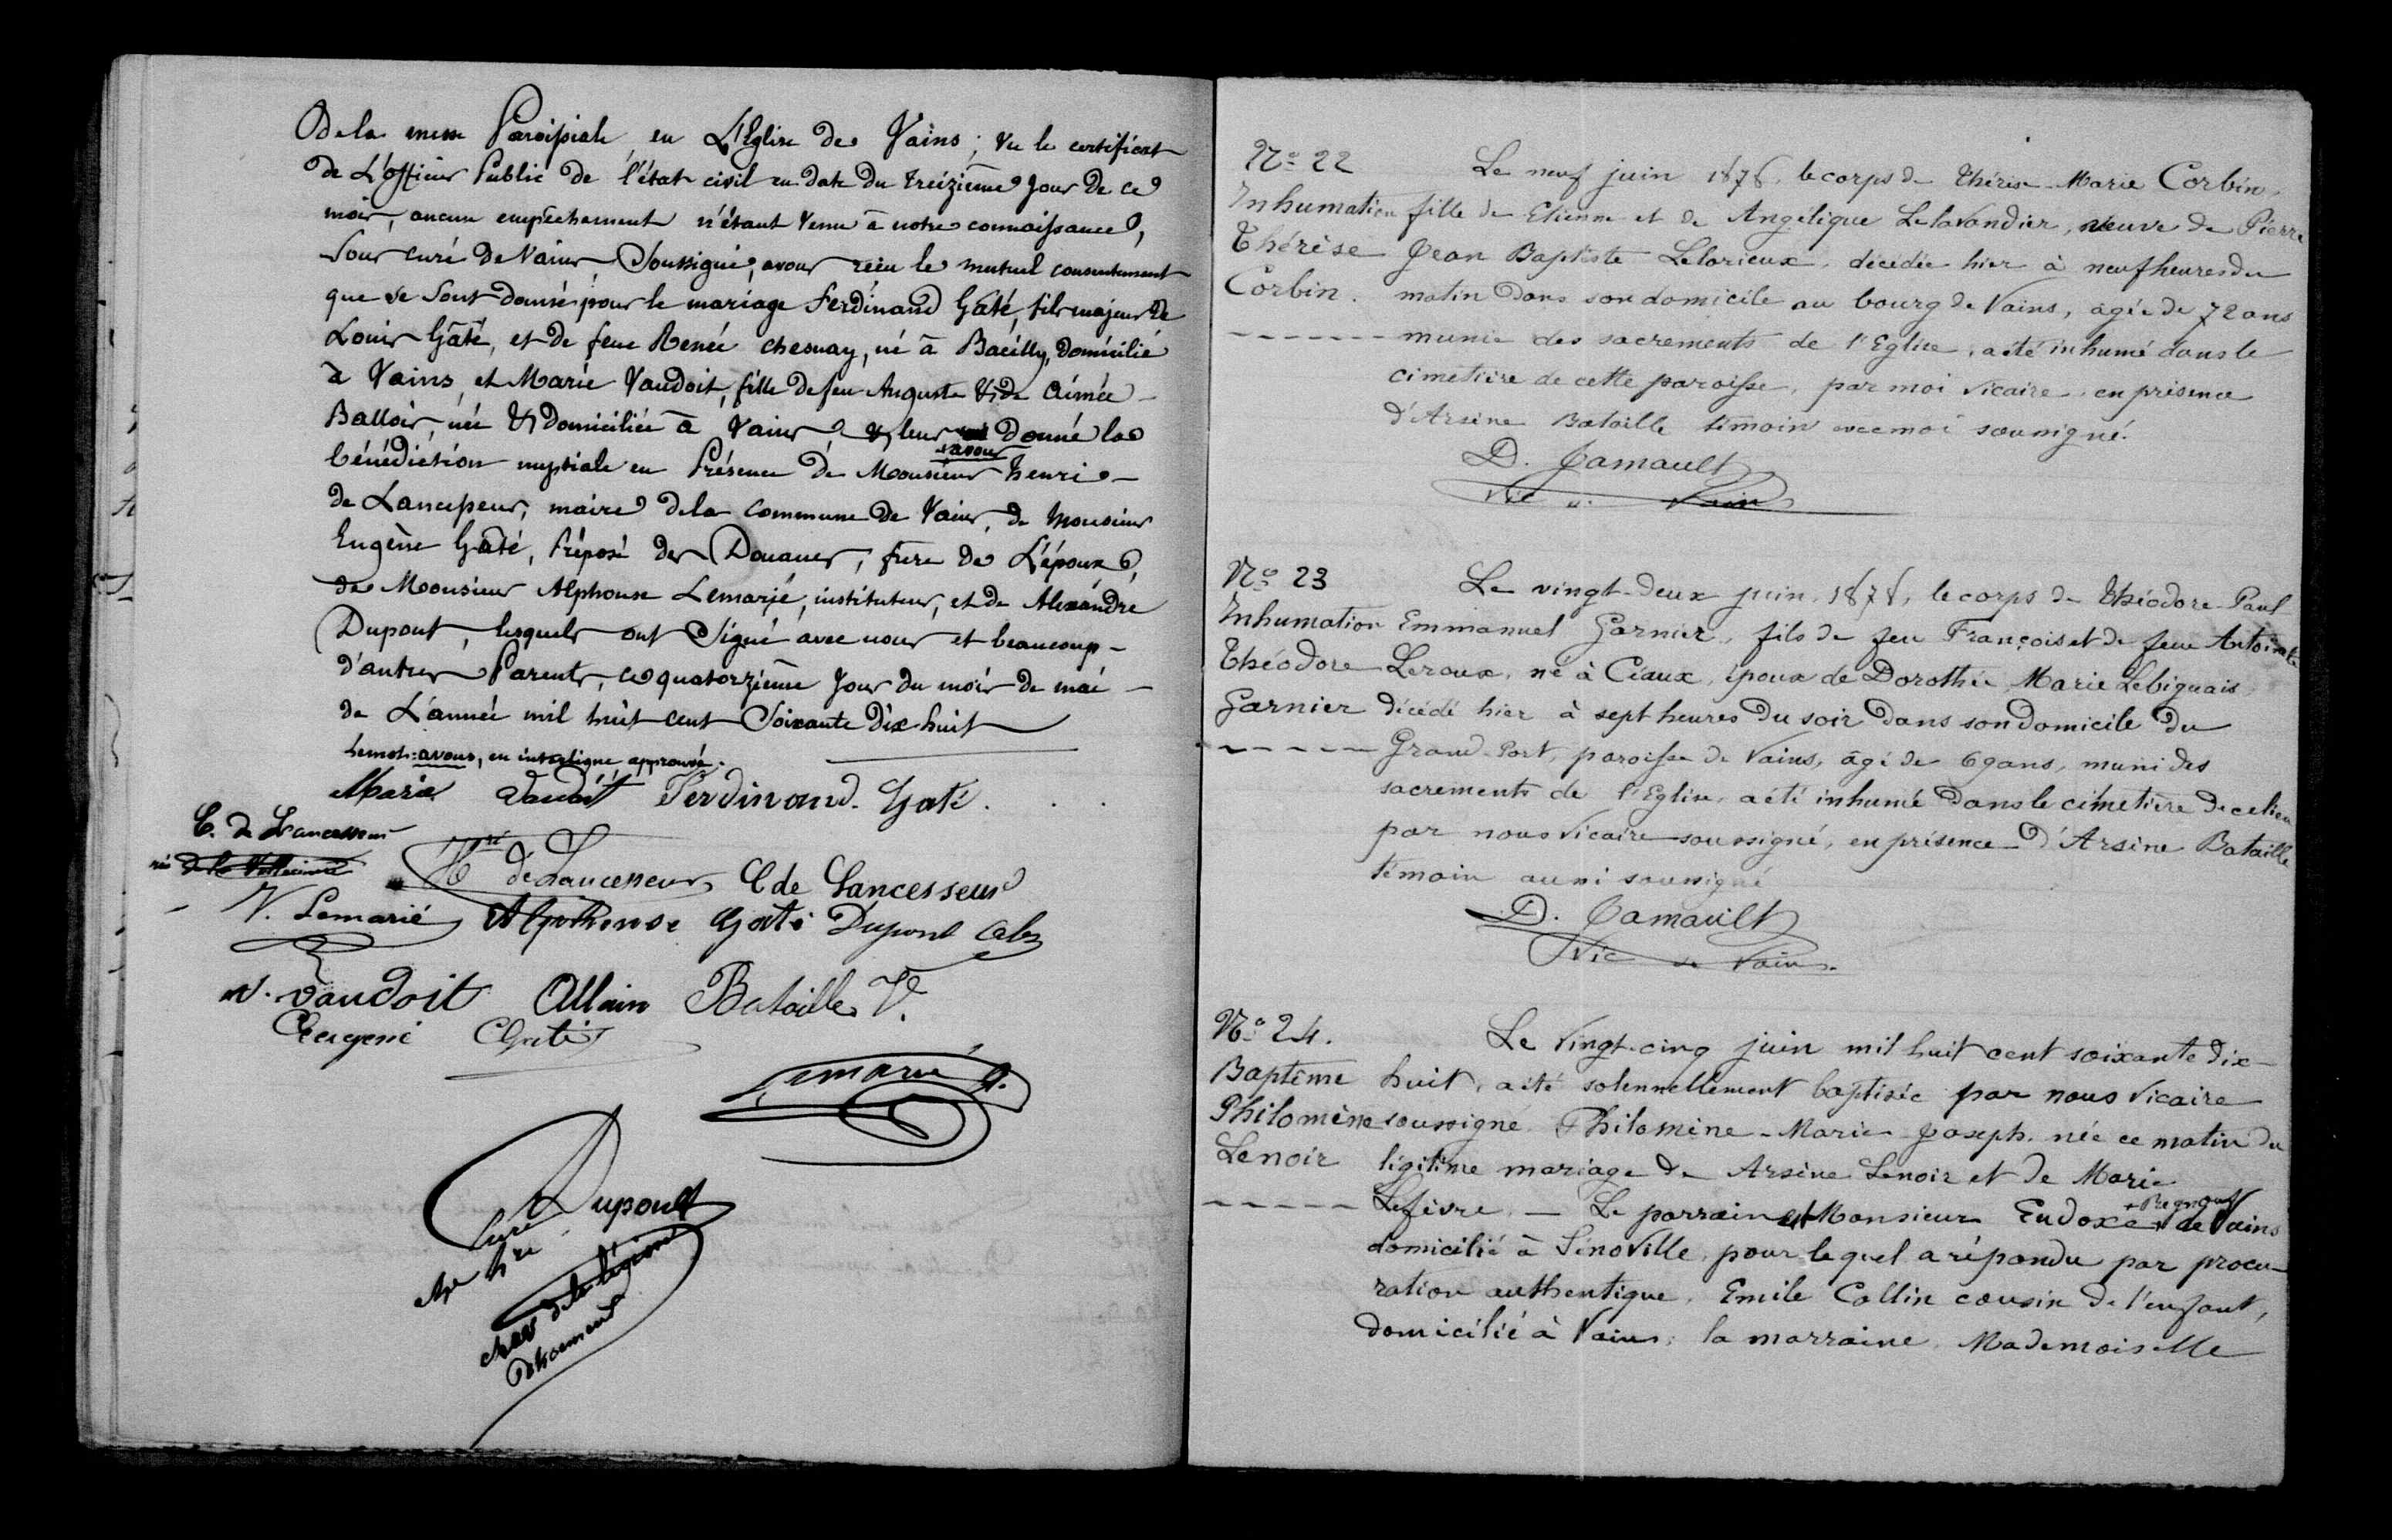 De la messe Paroissiale en L'Eglise de Vains ; Vu le certificat
de L'officier Public de l'état civil en date du treizième Jour de ce
mois, aucun empêchement n'étant venu à notre connaissance,
Nous curé de Vains, Soussigné, avons reçu le mutuel consentement
que se sont donné pour le mariage Ferdinand Gâté, fils majeur de
Louis Gâté, et de feue Renée Chesnay, né à Bacilly, domicilié
à Vains et Marie Vaudoit, fille de feu Auguste & de Aimée
Balloir, née & domiciliée à Vains & leur donné la
avons
bénédiction nuptiale en Présence de Monsieur henri
de Lancesseur, maire de la commune de Vains, de Monsieur
Eugène Gâté, Préposé des Douanes, frère de L'époux,
de Monsieur Alphonse Lemarié, instituteur, et de Alexandre
Dupont, lesquels ont Signé avec nous et beaucoup
d'autres Parents, ce quatorzième Jour du mois de mai
de L'année mil huit cent Soixante Dix huit
le mot : avons, en interligne approuvé.
Marie Vaudoit Ferdinand Gaté.
C. de Lancesseur
née de la
Hri de Lancesseur C de Lancesseur
V. Lemarié Alphonse Gaté Dupont
Vaudoit Allain Bataille V.
Eugene Gaté
Lemarié A.
Dupont
Curé
de la légion
d'honneur
N° 22
Inhumation
Thérèse
Corbin.
Le neuf juin 1878, le corps de Thérèse Marie Corbin,
fille de Etienne et de Angélique Lelavandier, veuve de Pierre
Jean Baptiste Lelorieux, décédée hier à neuf heures du
matin dans son domicile au bourg de Vains, agée de 72 ans
munie des sacrements de l'Eglise, a été inhumé dans le
cimetière de cette paroisse, par moi vicaire, en présence
d'Arsène Bataille témoin avec moi soussigné.
D. Jamault
Vic de Vains
N° 23
Inhumation
Théodore
Garnier
Le vingt-deux juin 1878, le corps de Théodore Paul
Emmanuel Garnier, fils de feu François et de feue Antoinette
Leroux, né à Céaux, époux de Dorothée Marie Lebiguais
décédé hier à sept heures du soir dans son domicile du
Grand-Port, paroisse de Vains, âgé de 69 ans, muni des
sacrements de l'Eglise, a été inhumé dans le cimetière de ce lieu
par nous vicaire soussigné, en présence d'Arsène Bataille
témoin aussi soussigné
D. Jamault
Vic de Vains.
N° 24.
Baptême
Philomène
Lenoir
Le Vingt-cinq juin mil huit cent soixante dix-
huit, a été solennellement baptisée par nous Vicaire
soussigné Philomène-Marie-Joseph, née ce matin du
légitime mariage de Arsène Lenoir et de Marie
Lefèvre. — Le parrain est Monsieur Eudoxe + de Vains
+ Regnouf
domicilié à Sénoville, pour lequel a répondu par procu-
ration authentique, Emile Collin cousin de l'enfant,
domicilié à Vains ; la marraine, Mademoiselle